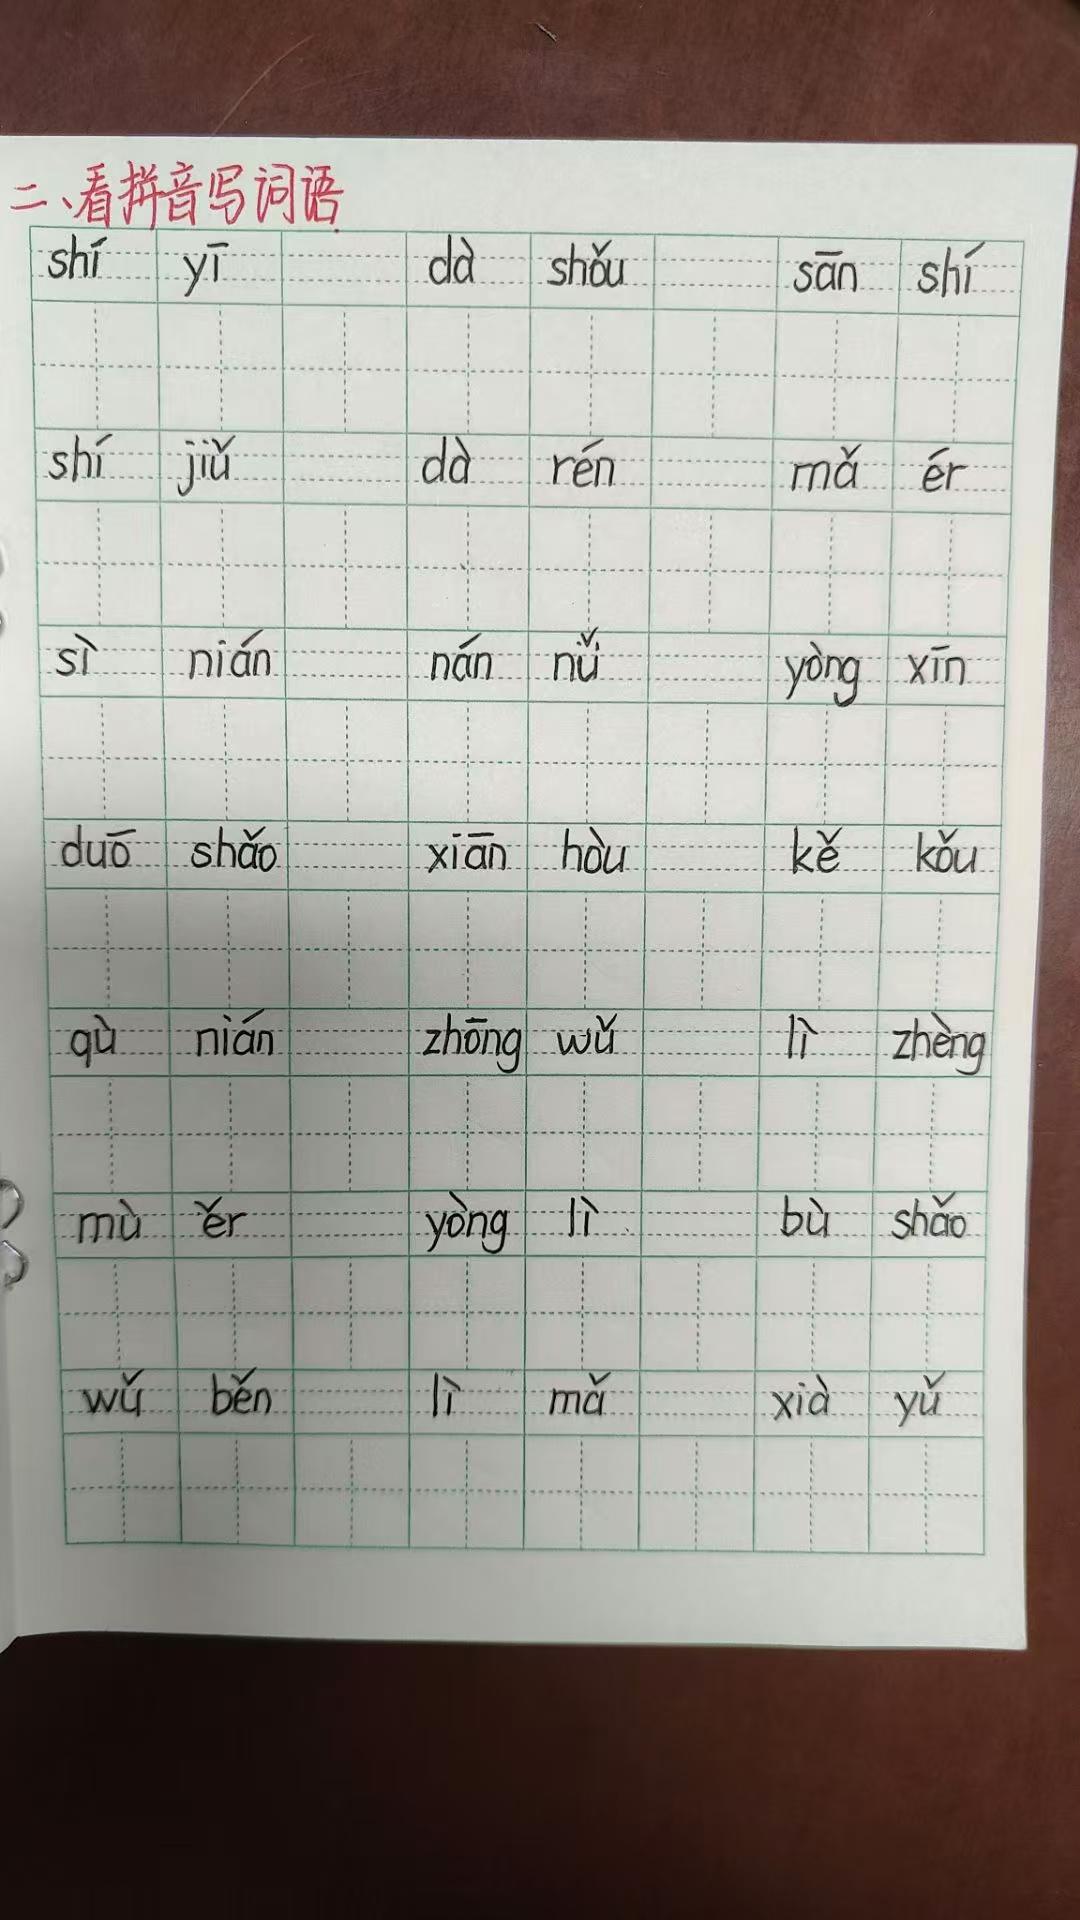 二、看拼音写词语
shí yī dà shǒu sān shí
shí jiǔ dà rén mǎ ér
sì nián nán nǚ yòng xīn
duō shǎo xiān hòu kě kǒu
qù nián zhōng wǔ lì zhèng
mù ěr yòng lì bù shǎo
wǔ běn lì mǎ xià yǔ